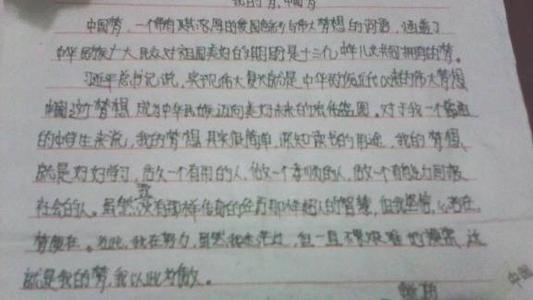 我的梦,中国梦
中国梦,一个带有其浓厚的爱国色彩与伟大梦想的词语,涵盖了
中华民族广大民众对祖国美好的期盼是十三亿中华儿女共同拥有的梦。
习近平总书记说,实现伟大复兴就是中华民族近代以来的伟大梦想
梦想 成为中华民族迈向美好未来的 蓝图。对于我一个普通
的中学生来说,我的梦想其实很简单,深知读书的用途,我的梦想,
就是好好学习,做一个有用的人,做一个孝顺的人,做一个有能力回报
社会的人。虽然我没有那样传奇的经历那样超人的智慧,但我坚信,心若在,
梦便在。为此,我在努力,虽然 ,但一直不畏艰难 ,这
就是我的梦,我以此为傲。
中国